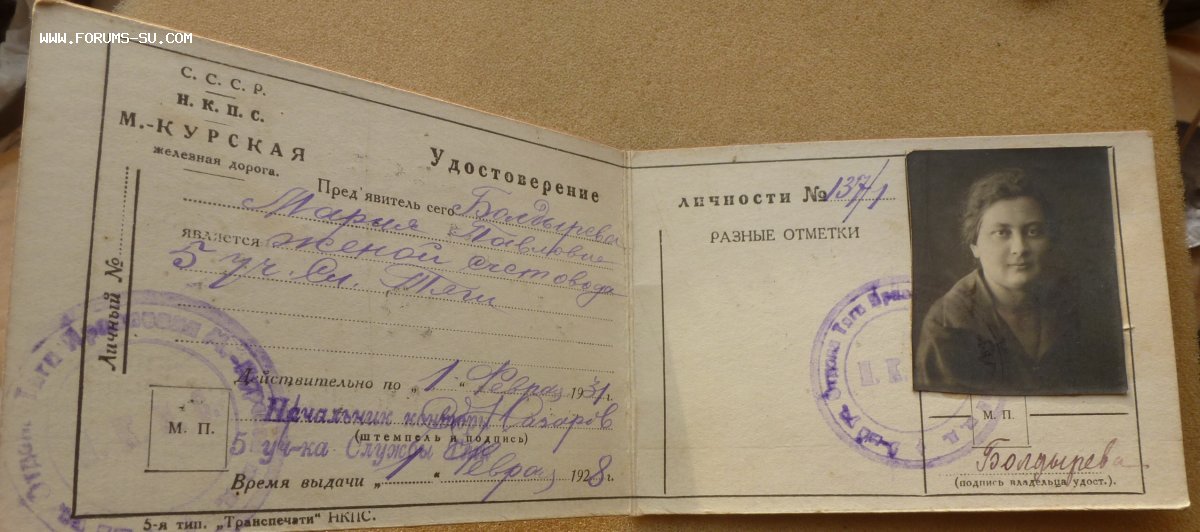 WWW.FORUMS-SU.COM
С. С. С. Р.
Н. К. П. С.
М.-КУРСКАЯ
железная дорога.
Личный №
Удостоверение
Пред'явитель сего Болдырева
Мария Павловна
является женой счетовода
5 уч. Сл. Тяги
Действительно по „1“ Феврал 1931 г.
М. П.
Начальник конторы
Назаров
(штемпель и подпись)
5 уч-ка Службы Тяги
Время выдачи „1“ Феврал 1928 г.
5-я тип. „Транспечати“ НКПС.
ЛИЧНОСТИ № 137/1
РАЗНЫЕ ОТМЕТКИ
М. П.
Болдырева
(подпись владельца удост.).